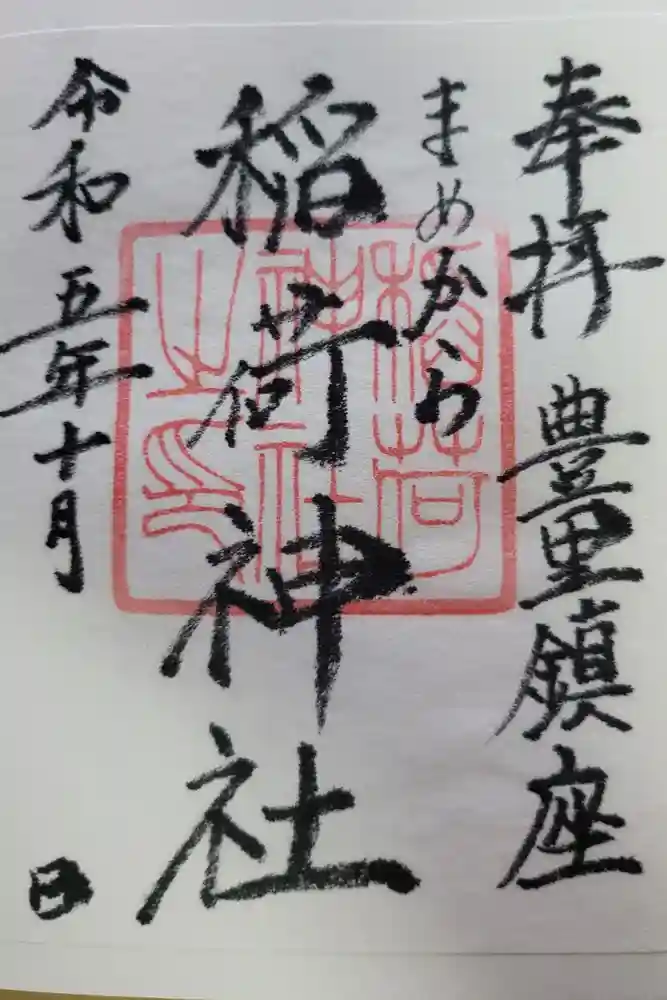 奉拝 豊里鎮座
稲荷神社
令和五年十月 日
稲荷
神社
之印